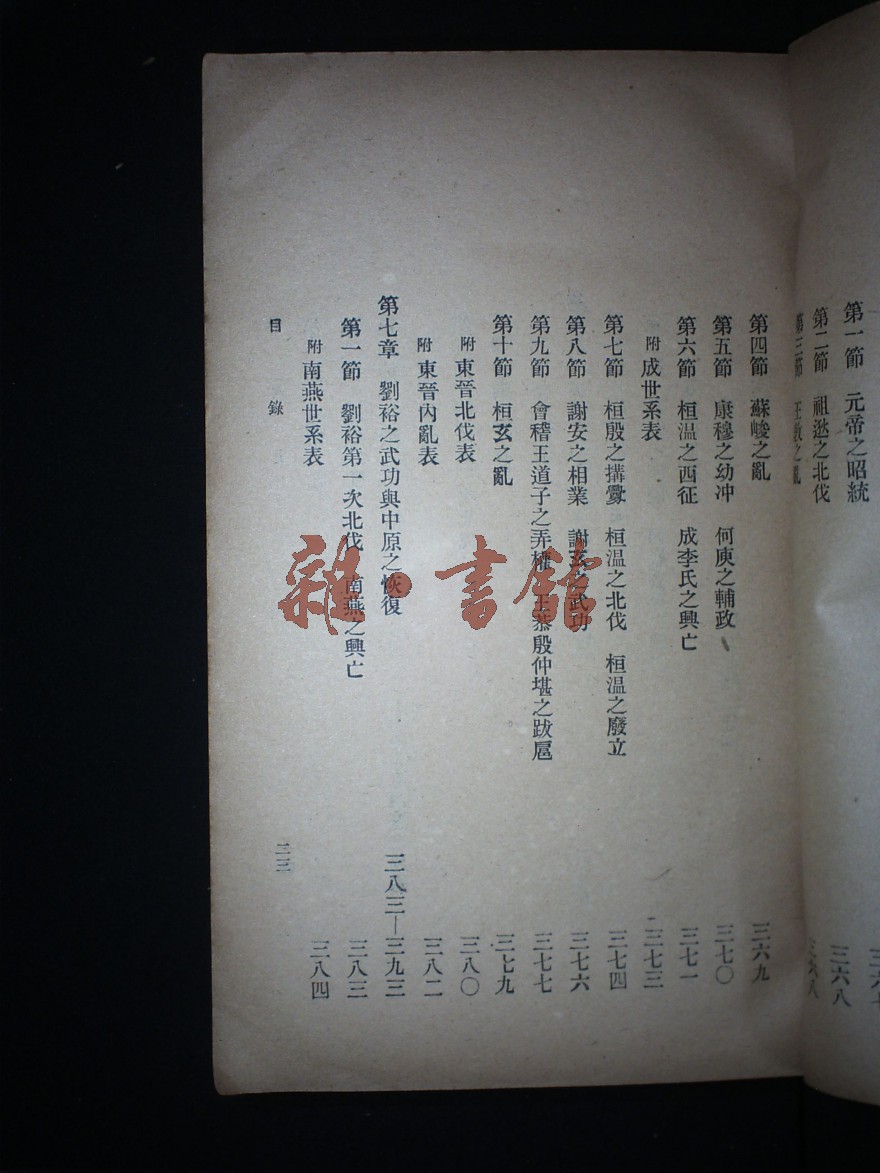 第一節　元帝之昭統　三六
第二節　祖逖之北伐　三六八
第三節　王敦之亂　三六八
第四節　蘇峻之亂　三六九
第五節　康穆之幼冲　何庾之輔政　三七〇
第六節　桓温之西征　成李氏之興亡　三七一
附　成世系表　三七三
第七節　桓殷之搆釁　桓温之北伐　桓温之廢立　三七四
第八節　謝安之相業　謝玄之武功　三七六
第九節　會稽王道子之弄權　王恭殷仲堪之跋扈　三七七
第十節　桓玄之亂　三七九
附　東晉北伐表　三八〇
附　東晉內亂表　三八二
第七章　劉裕之武功與中原之恢復　三八三—三九三
第一節　劉裕第一次北伐　南燕之興亡　三八三
附　南燕世系表　三八四
目錄　二三
雜·書館